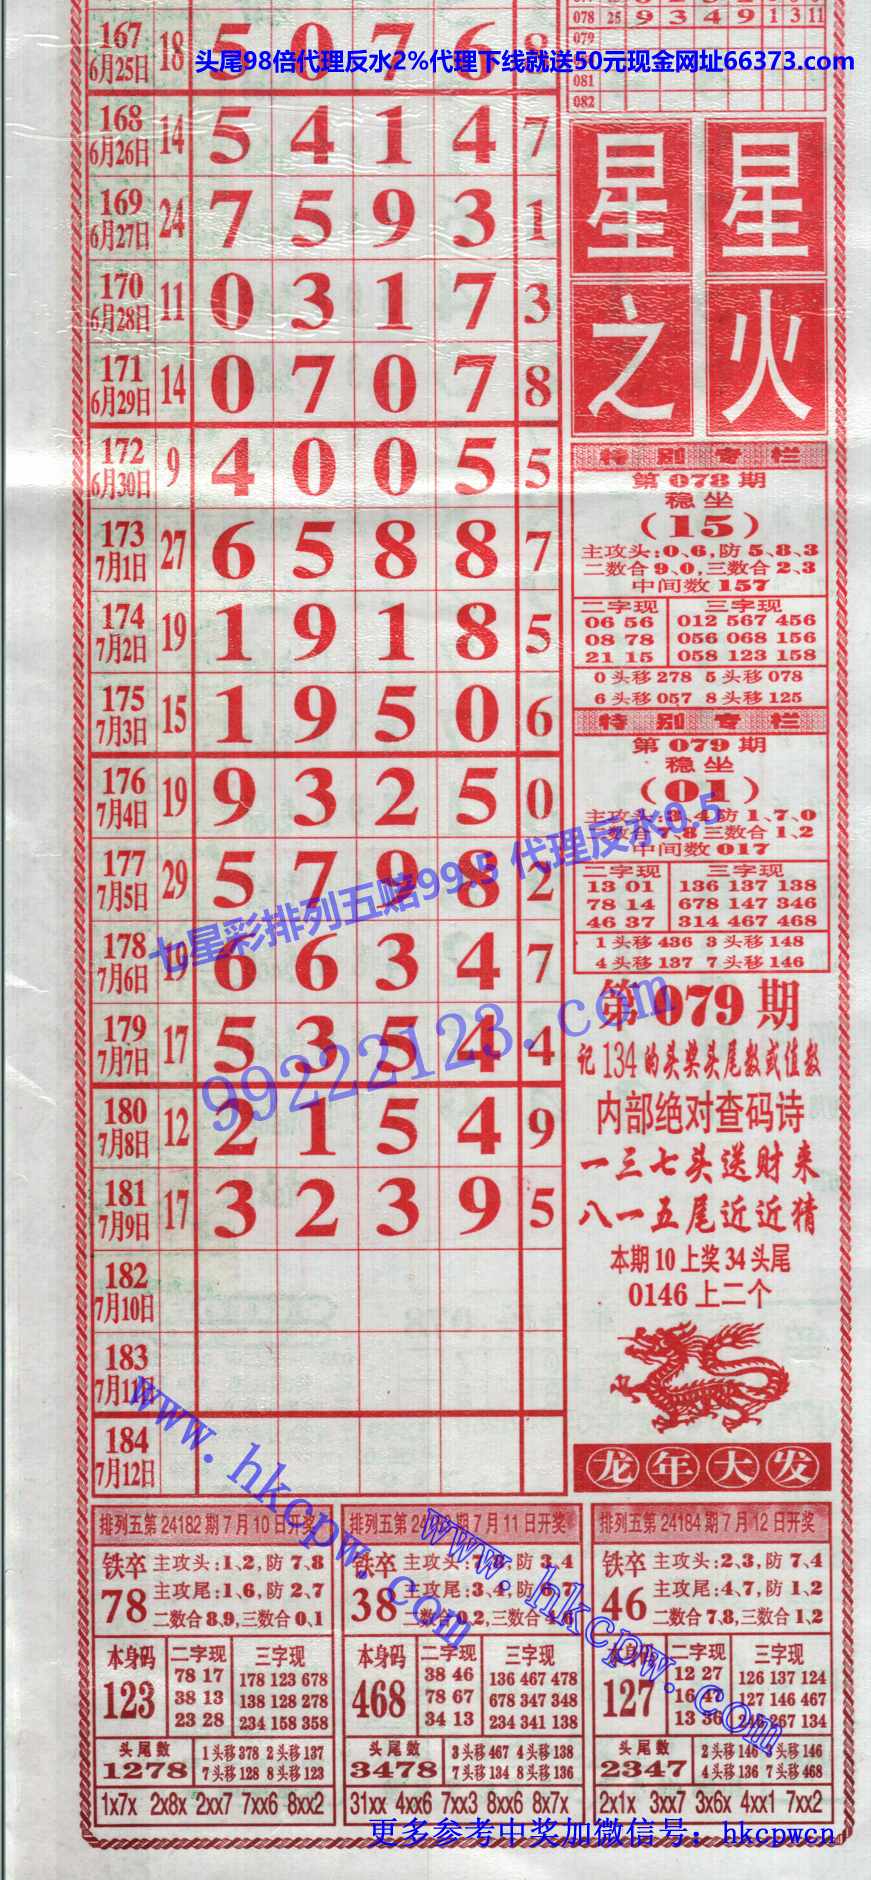 078 25 9 3 4 9 1 3 11
079
081
082
头尾98倍代理反水2%代理下线就送50元现金网址66373.com
167 6月25日 18 5 0 7 6 8
168 6月26日 14 5 4 1 4 7
169 6月27日 24 7 5 9 3 1
170 6月28日 11 0 3 1 7 3
171 6月29日 14 0 7 0 7 8
172 6月30日 9 4 0 0 5 5
173 7月1日 27 6 5 8 8 7
174 7月2日 19 1 9 1 8 5
175 7月3日 15 1 9 5 0 6
176 7月4日 19 9 3 2 5 0
177 7月5日 29 5 7 9 8 2
178 7月6日 19 6 6 3 4 7
179 7月7日 17 5 3 5 4 4
180 7月8日 12 2 1 5 4 9
181 7月9日 17 3 2 3 9 5
182 7月10日
183 7月11日
184 7月12日
星星
之火
特别专栏
第078期
稳坐
(15)
主攻头:0、6,防5、8、3
二数合9、0,三数合2、3
中间数157
二字现 三字现
06 56 012 567 456
08 78 056 068 156
21 15 058 123 158
0头移278 5头移078
6头移057 8头移125
特别专栏
第079期
稳坐
(01)
主攻头:3、4,防1、7、0
二数合7、8三数合1、2
中间数017
二字现 三字现
13 01 136 137 138
78 14 678 147 346
46 37 314 467 468
1头移436 3头移148
4头移137 7头移146
第079期
记134的头奖头尾数或值数
内部绝对查码诗
一三七头送财来
八一五尾近近猜
本期10上奖34头尾
0146上二个
龙年大发
七星彩排列五赔99.5 代理反水0.5
99222123.com
www.hkcpw.com
www.hkcpw.com
排列五第24182期7月10日开奖
铁卒 78
主攻头:1、2,防7、8
主攻尾:1、6,防2、7
二数合8、9,三数合0、1
本身码 123
二字现 三字现
78 17 178 123 678
38 13 138 128 278
23 28 234 158 358
头尾数 1278
1头移378 2头移137
7头移128 8头移123
1x7x 2x8x 2xx7 7xx6 8xx2
排列五第24183期7月11日开奖
铁卒 38
主攻头:7、8,防3、4
主攻尾:3、4,防6、7
二数合0、2,三数合4、6
本身码 468
二字现 三字现
38 46 136 467 478
78 67 678 347 348
34 13 234 341 138
头尾数 3478
3头移467 4头移138
7头移134 8头移136
31xx 4xx6 7xx3 8xx6 8x7x
排列五第24184期7月12日开奖
铁卒 46
主攻头:2、3,防7、4
主攻尾:4、7,防1、2
二数合7、8,三数合1、2
本身码 127
二字现 三字现
12 27 126 137 124
16 47 127 146 467
13 36 246 267 134
头尾数 2347
2头移146 3头移146
4头移136 7头移468
2x1x 3xx7 3x6x 4xx1 7xx2
更多参考中奖加微信号：hkcpwcn